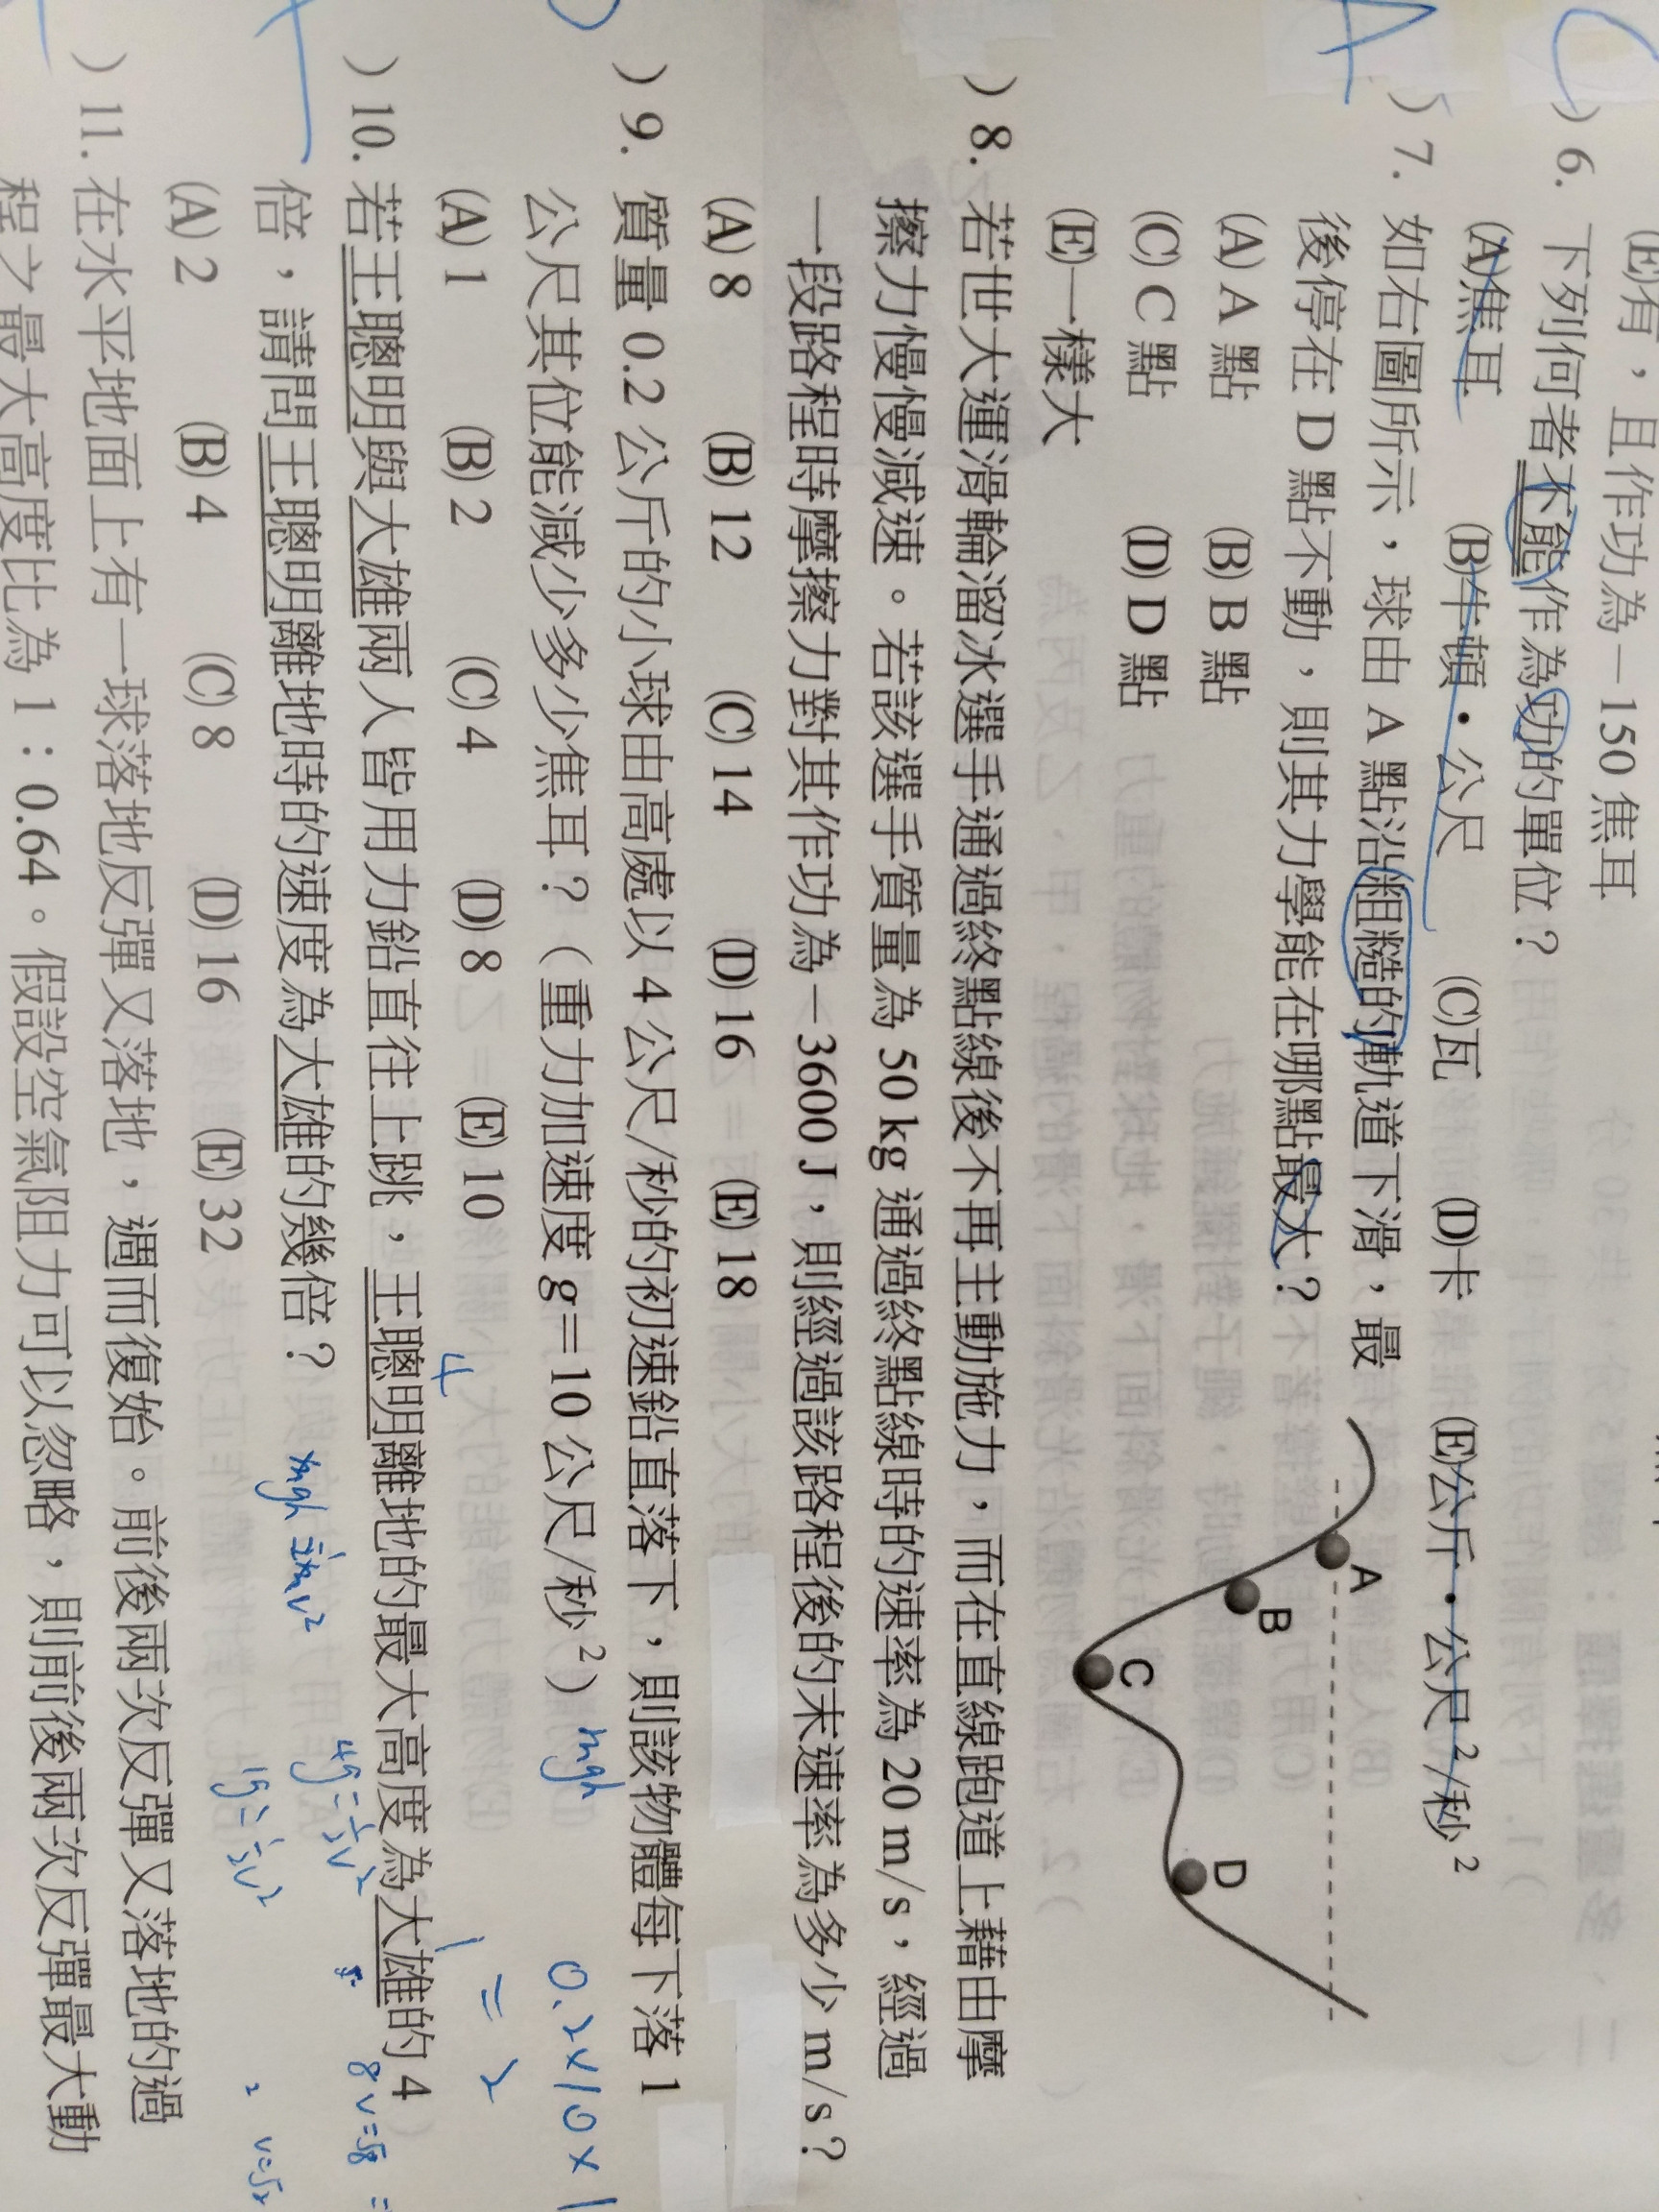 (E)有，且作功為－150焦耳
C
)6. 下列何者不能作為功的單位？
(A)焦耳 (B)牛頓・公尺 (C)瓦 (D)卡 (E)公斤・公尺²/秒²
A
)7. 如右圖所示，球由 A 點沿粗糙的軌道下滑，最
後停在 D 點不動，則其力學能在哪點最大？
(A) A 點 (B) B 點
(C) C 點 (D) D 點
(E)一樣大
A
B
C
D
)8. 若世大運滑輪溜冰選手通過終點線後不再主動施力，而在直線跑道上藉由摩
擦力慢慢減速。若該選手質量為 50 kg 通過終點線時的速率為 20 m/s，經過
一段路程時摩擦力對其作功為－3600 J，則經過該路程後的末速率為多少 m/s？
(A) 8 (B) 12 (C) 14 (D) 16 (E) 18
)9. 質量 0.2 公斤的小球由高處以 4 公尺/秒的初速鉛直落下，則該物體每下落 1
公尺其位能減少多少焦耳？（重力加速度 g＝10 公尺/秒²）
mgh
0.2×10×1
= 2
(A) 1 (B) 2 (C) 4 (D) 8 (E) 10
)10. 若王聰明與大雄兩人皆用力鉛直往上跳，王聰明離地的最大高度為大雄的 4
倍，請問王聰明離地時的速度為大雄的幾倍？
4
1
mgh = ½mv²
4g = ½v²
8
v=√8
1g = ½v²
(A) 2 (B) 4 (C) 8 (D) 16 (E) 32
)11. 在水平地面上有一球落地反彈又落地，週而復始。前後兩次反彈又落地的過
程之最大高度比為 1：0.64。假設空氣阻力可以忽略，則前後兩次反彈最大動